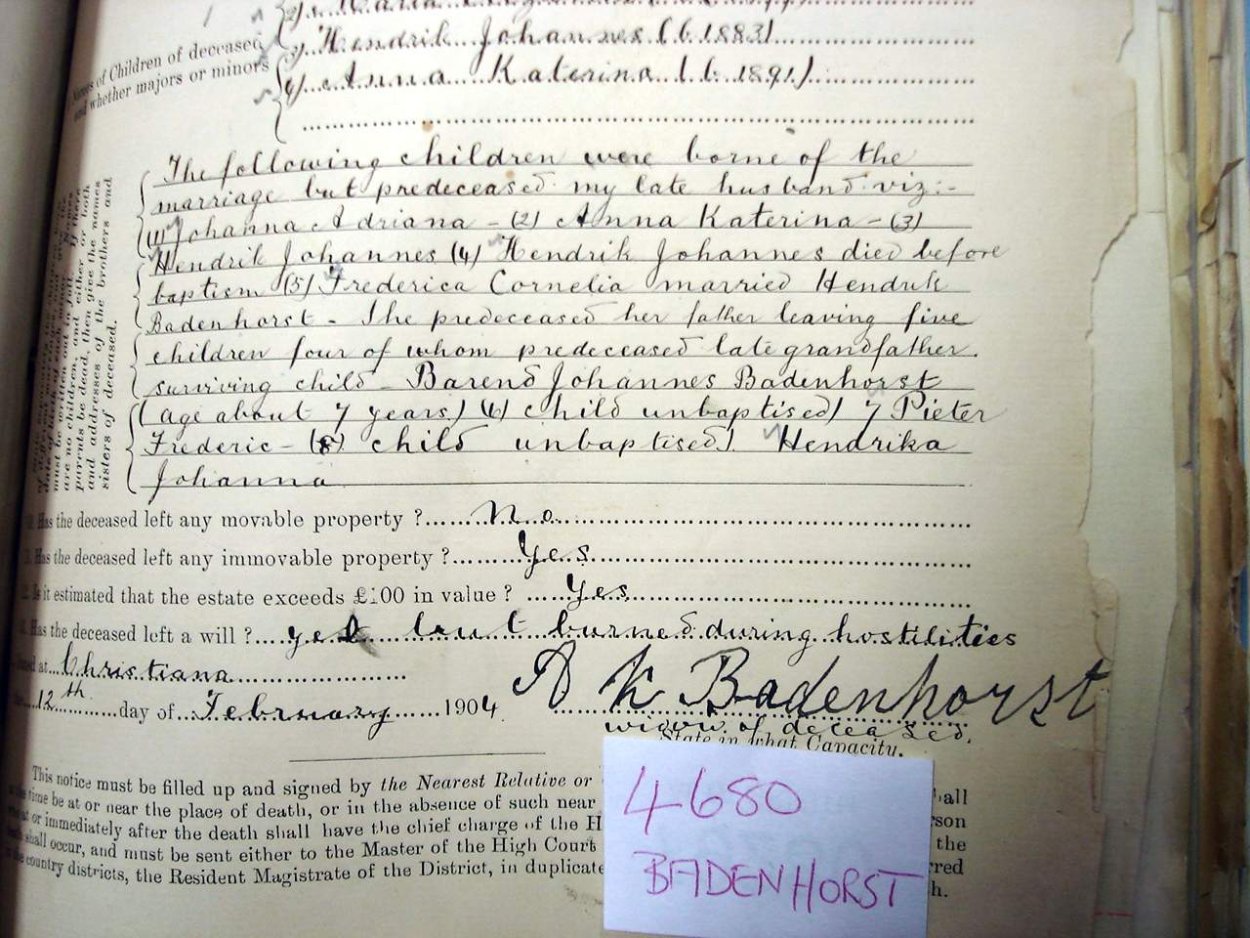 Hendrik Johannes (b. 1883)
Names of Children of deceased
and whether majors or minors
4) Anna Katerina (b. 1891)
The following children were borne of the
marriage but predeceased my late husband viz:-
(1) Johanna Adriana - (2) Anna Katerina - (3)
Hendrik Johannes (4) Hendrik Johannes died before
baptism (5) Frederica Cornelia married Hendrik
Badenhorst - She predeceased her father leaving five
children four of whom predeceased late grandfather.
surviving child - Barend Johannes Badenhorst
(age about 7 years) (6) child unbaptised) 7 Pieter
Frederic - (8) child unbaptised). Hendrika
Johanna
must be written out in full. If there
are no children, and either or both
parents be dead, then give the names
and addresses of the brothers and
sisters of deceased.
Has the deceased left any movable property ? No
Has the deceased left any immovable property ? Yes
Is it estimated that the estate exceeds £100 in value ? Yes
Has the deceased left a will ? yes but burned during hostilities
at Christiana
12th day of February 1904
A K Badenhorst
widow of deceased.
State in what Capacity.
This notice must be filled up and signed by the Nearest Relative or
time be at or near the place of death, or in the absence of such near
or immediately after the death shall have the chief charge of the H
shall occur, and must be sent either to the Master of the High Court
country districts, the Resident Magistrate of the District, in duplicate
the
h.
4680
BADENHORST